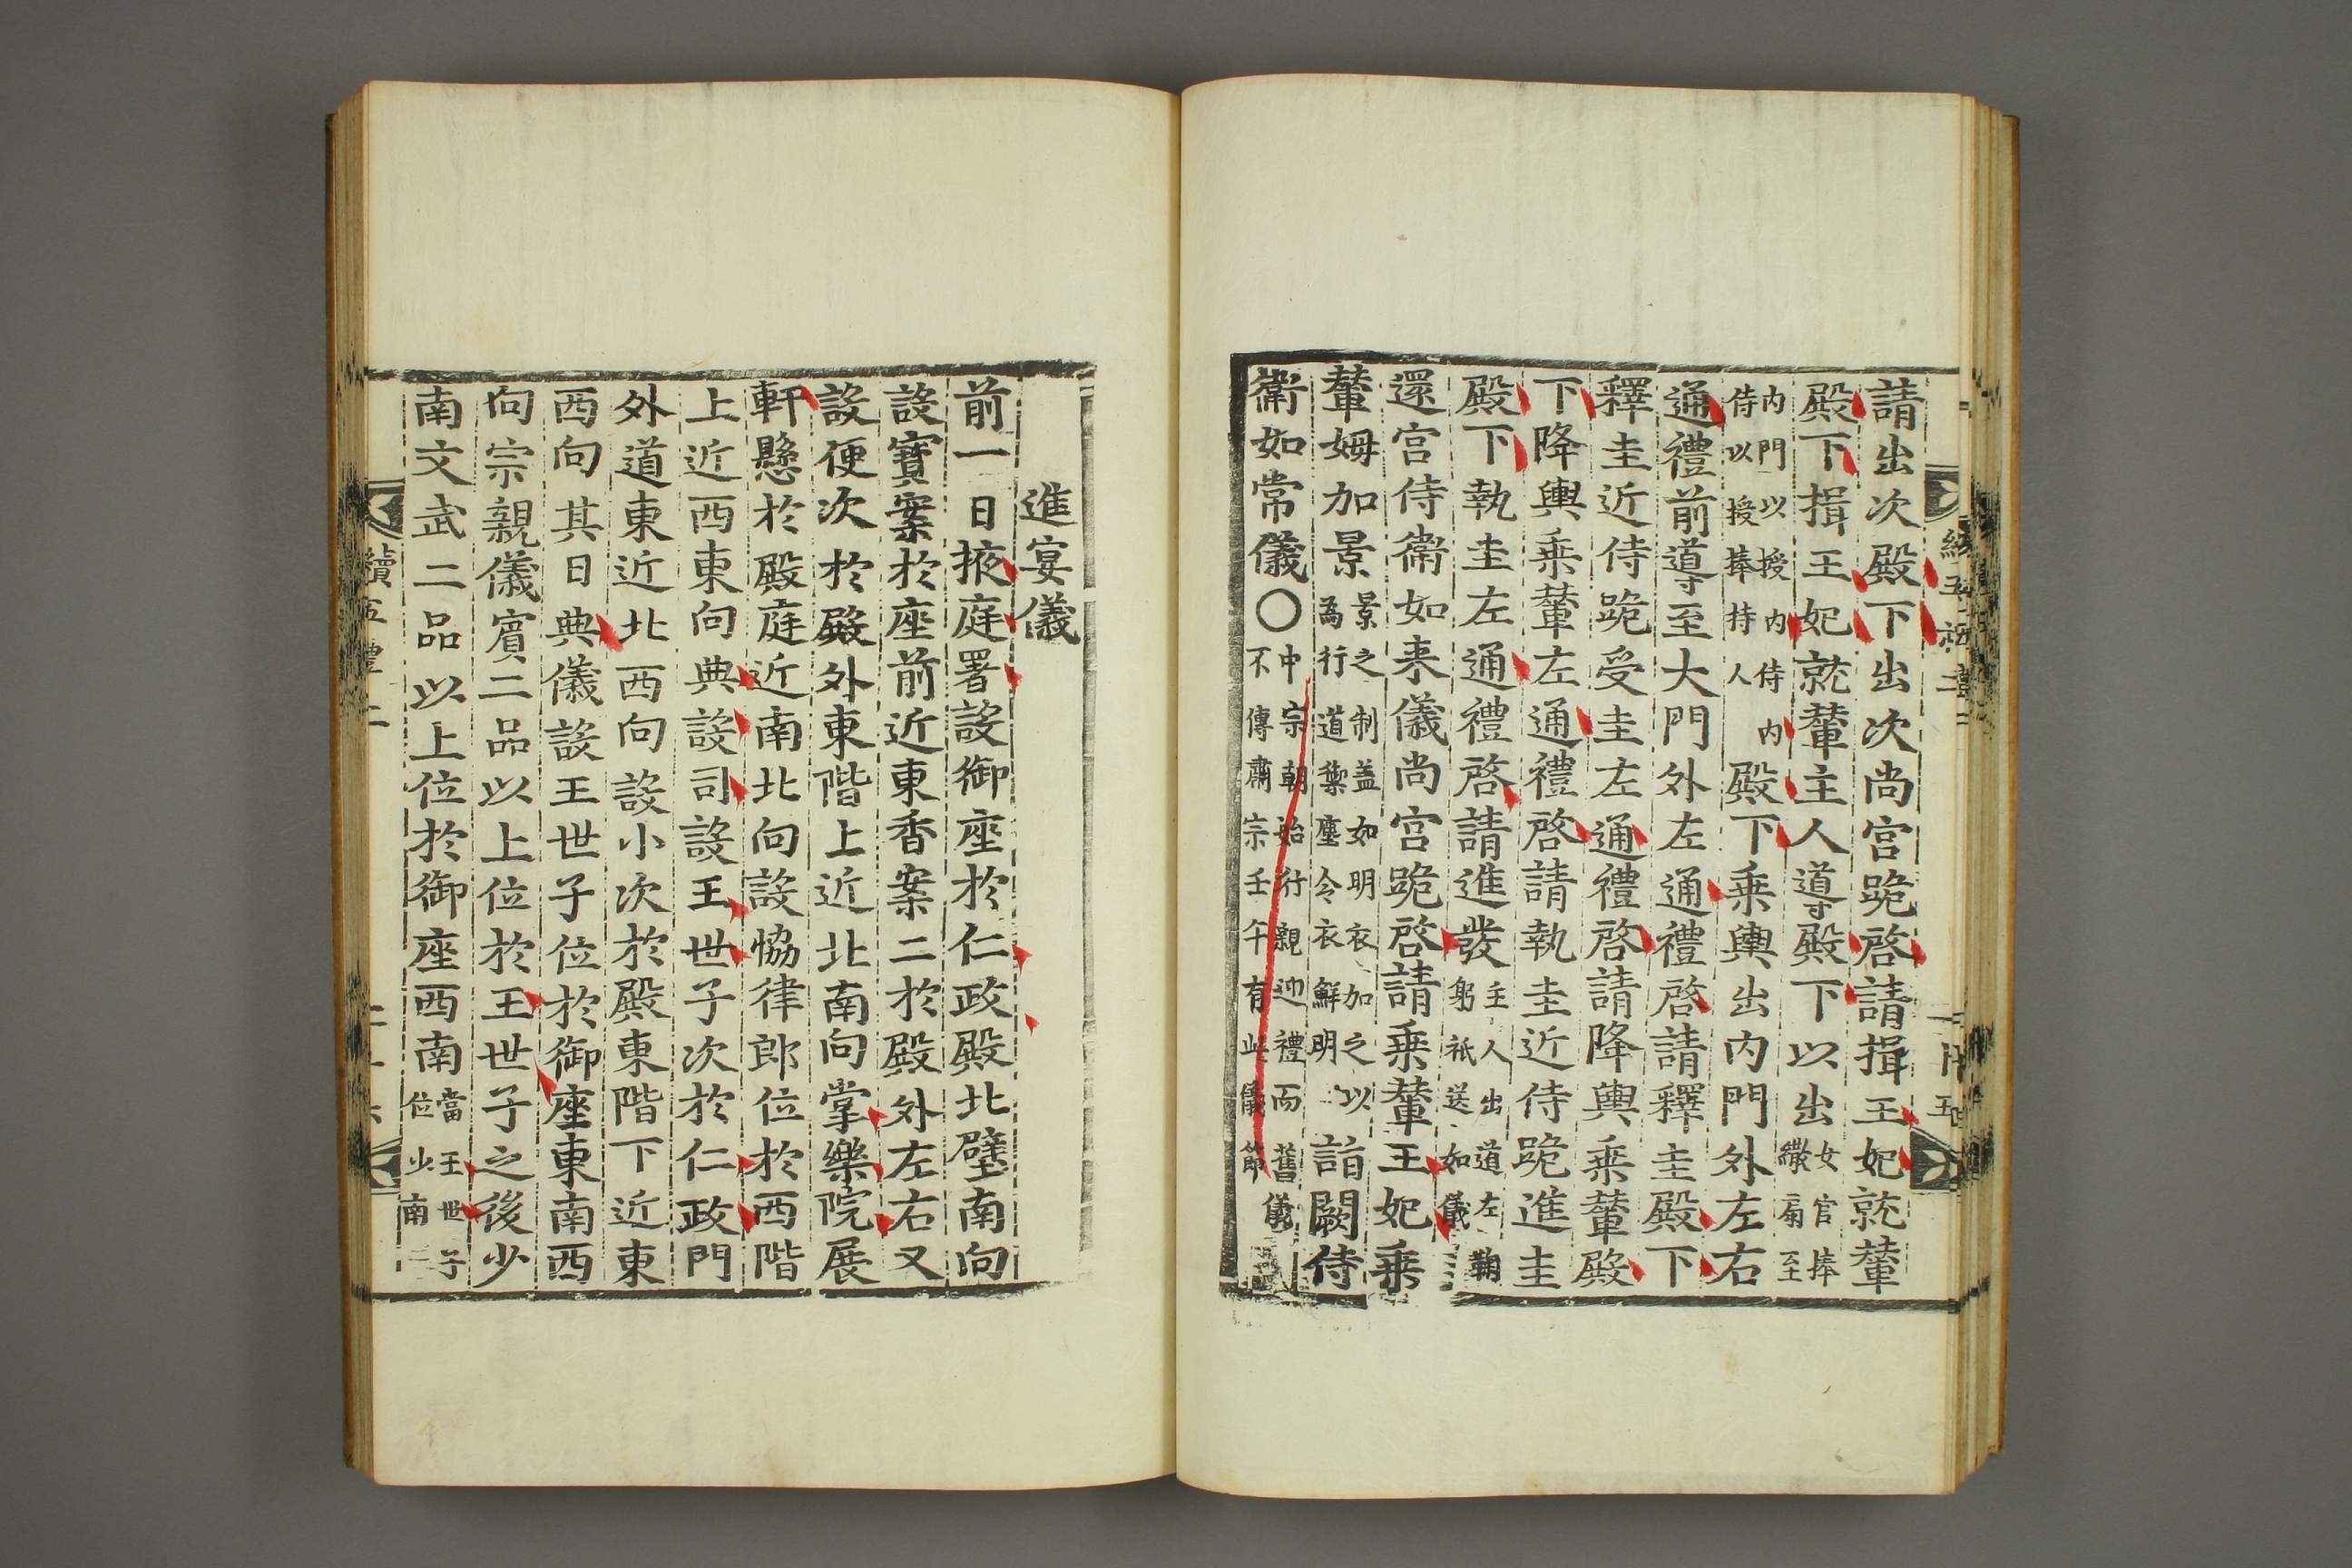 請出次殿下出次尚宮跪啓請揖王妃就輦
殿下揖王妃就輦主人導殿下以出女官捧繖扇至
內門以授內侍內侍以授捧持人殿下乗輿出內門外左右
通禮前導至大門外左通禮啓請釋圭殿下
釋圭近侍跪受圭左通禮啓請降輿乗輦殿
下降輿乗輦左通禮啓請執圭近侍跪進圭
殿下執圭左通禮啓請進發主人出道左鞠躬祇送如儀
還宮侍衛如来儀尚宮跪啓請乗輦王妃乗
輦姆加景景之制盖如明衣加之以為行道禦塵令衣鮮明詣闕侍
衛如常儀〇中宗朝始行親迎禮而舊儀不傳肅宗壬午有此儀節
進宴儀
前一日掖庭署設御座於仁政殿北壁南向
設寶案於座前近東香案二於殿外左右又
設便次於殿外東階上近北南向掌樂院展
軒懸於殿庭近南北向設恊律郎位於西階
上近西東向典設司設王世子次於仁政門
外道東近北西向設小次於殿東階下近東
西向其日典儀設王世子位於御座東南西
向宗親儀賓二品以上位於王世子之後少
南文武二品以上位於御座西南當王世子位少南
續五禮二